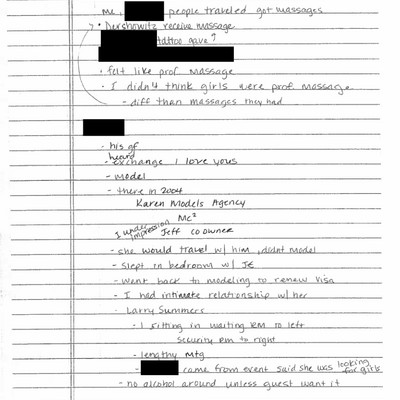 me, people traveled got massages
• Dershowitz receive massage
tattoo gave?
• felt like prof massage
• I didn't think girls were prof. massage
- diff than massages they had
- his gf
heard
- exchange I love yous
- model
- there in 2004
Karen Models Agency
Mc²
I under impression Jeff co owner
- she would travel w/ him, didnt model
- slept in bedroom w/ JE
- went back to modeling to renew visa
- I had intimate relationship w/ her
- Larry Summers
- I sitting in waiting RM to left
security RM to right
- lengthy mtg
- came from event said she was looking for girls
- no alcohol around unless guest want it